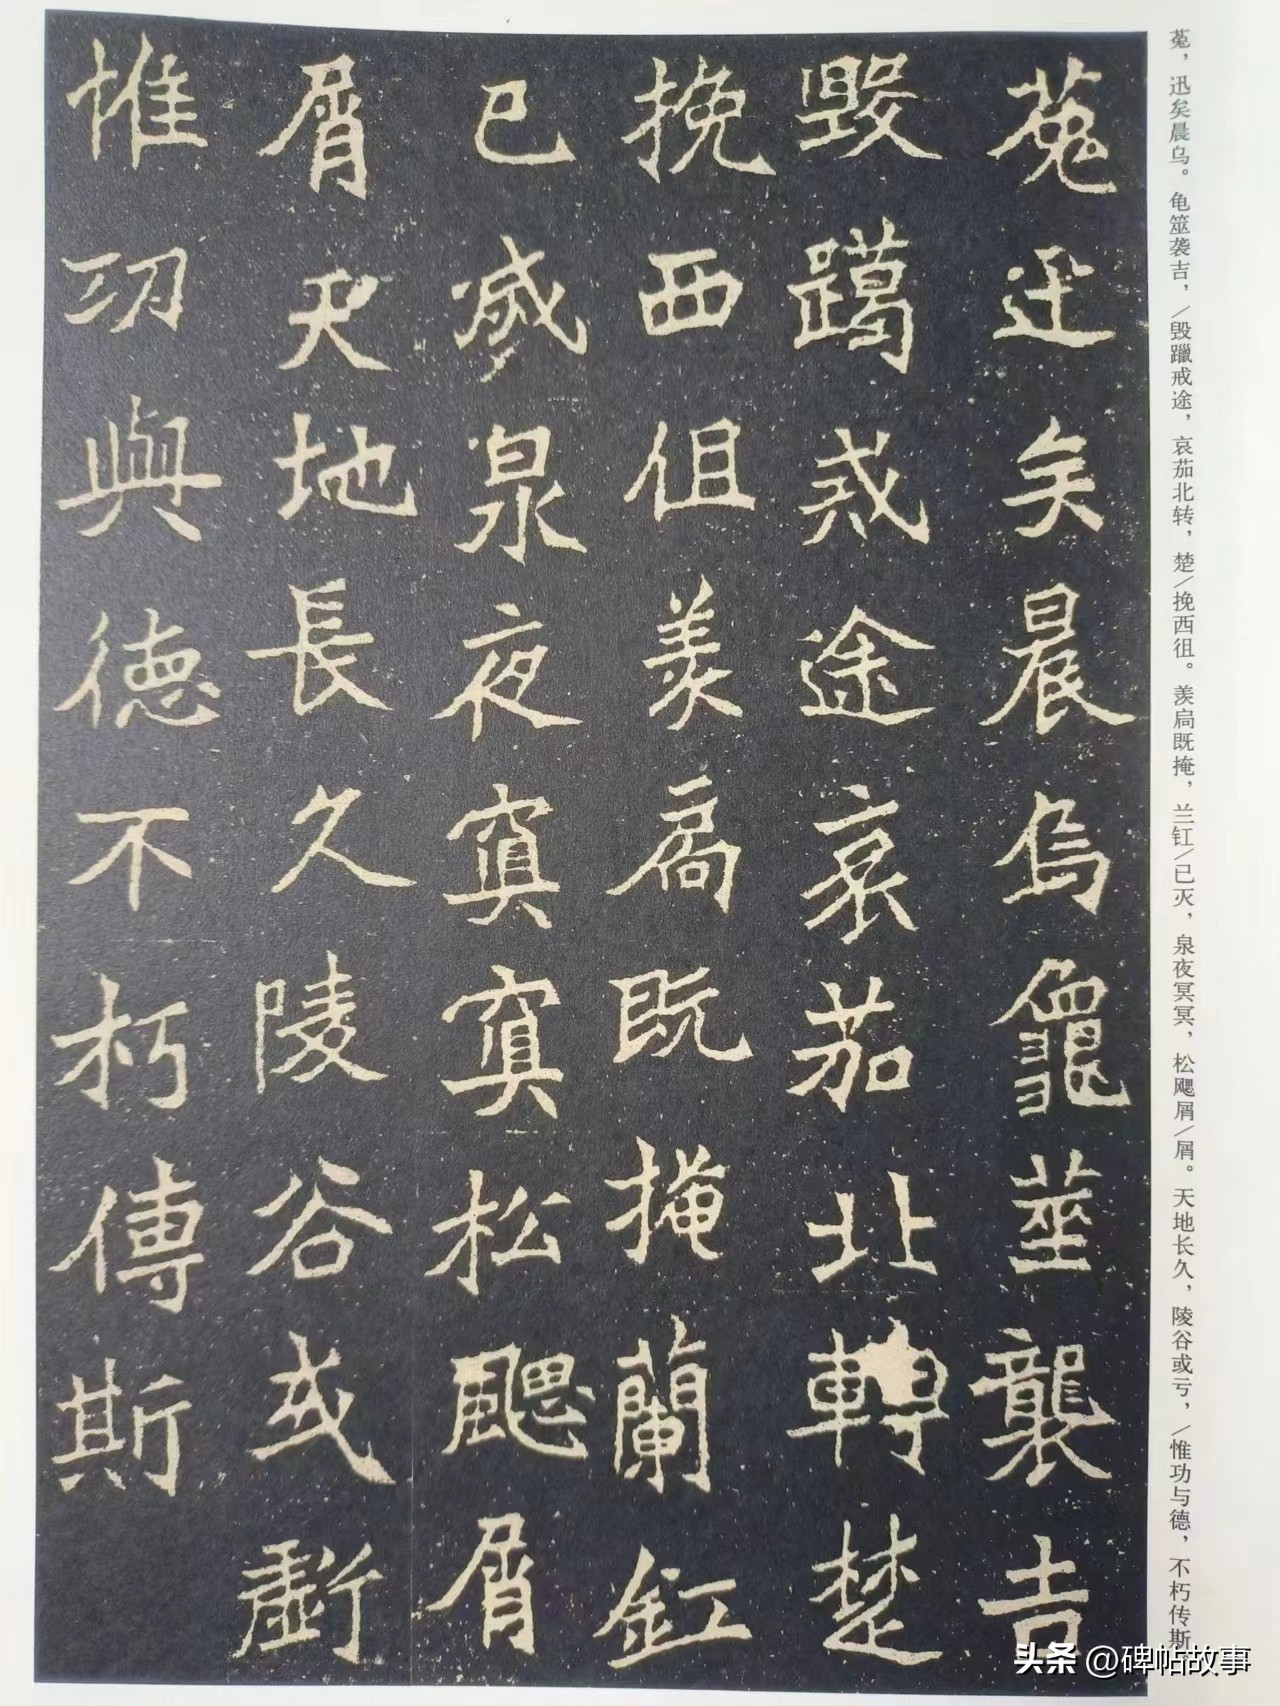 菟迅矣晨乌龜筮襲吉
毀躐戒途哀茄北轉楚
挽西徂羨扃既掩蘭釭
已滅泉夜冥冥松颸屑
屑天地長久陵谷或虧
惟功與德不朽傳斯
菟，迅矣晨乌。龟筮袭吉，／毁躐戒途，哀茄北转，楚／挽西徂。羡扃既掩，兰釭／已灭，泉夜冥冥，松飔屑／屑。天地长久，陵谷或亏，／惟功与德，不朽传斯
头条 @碑帖故事